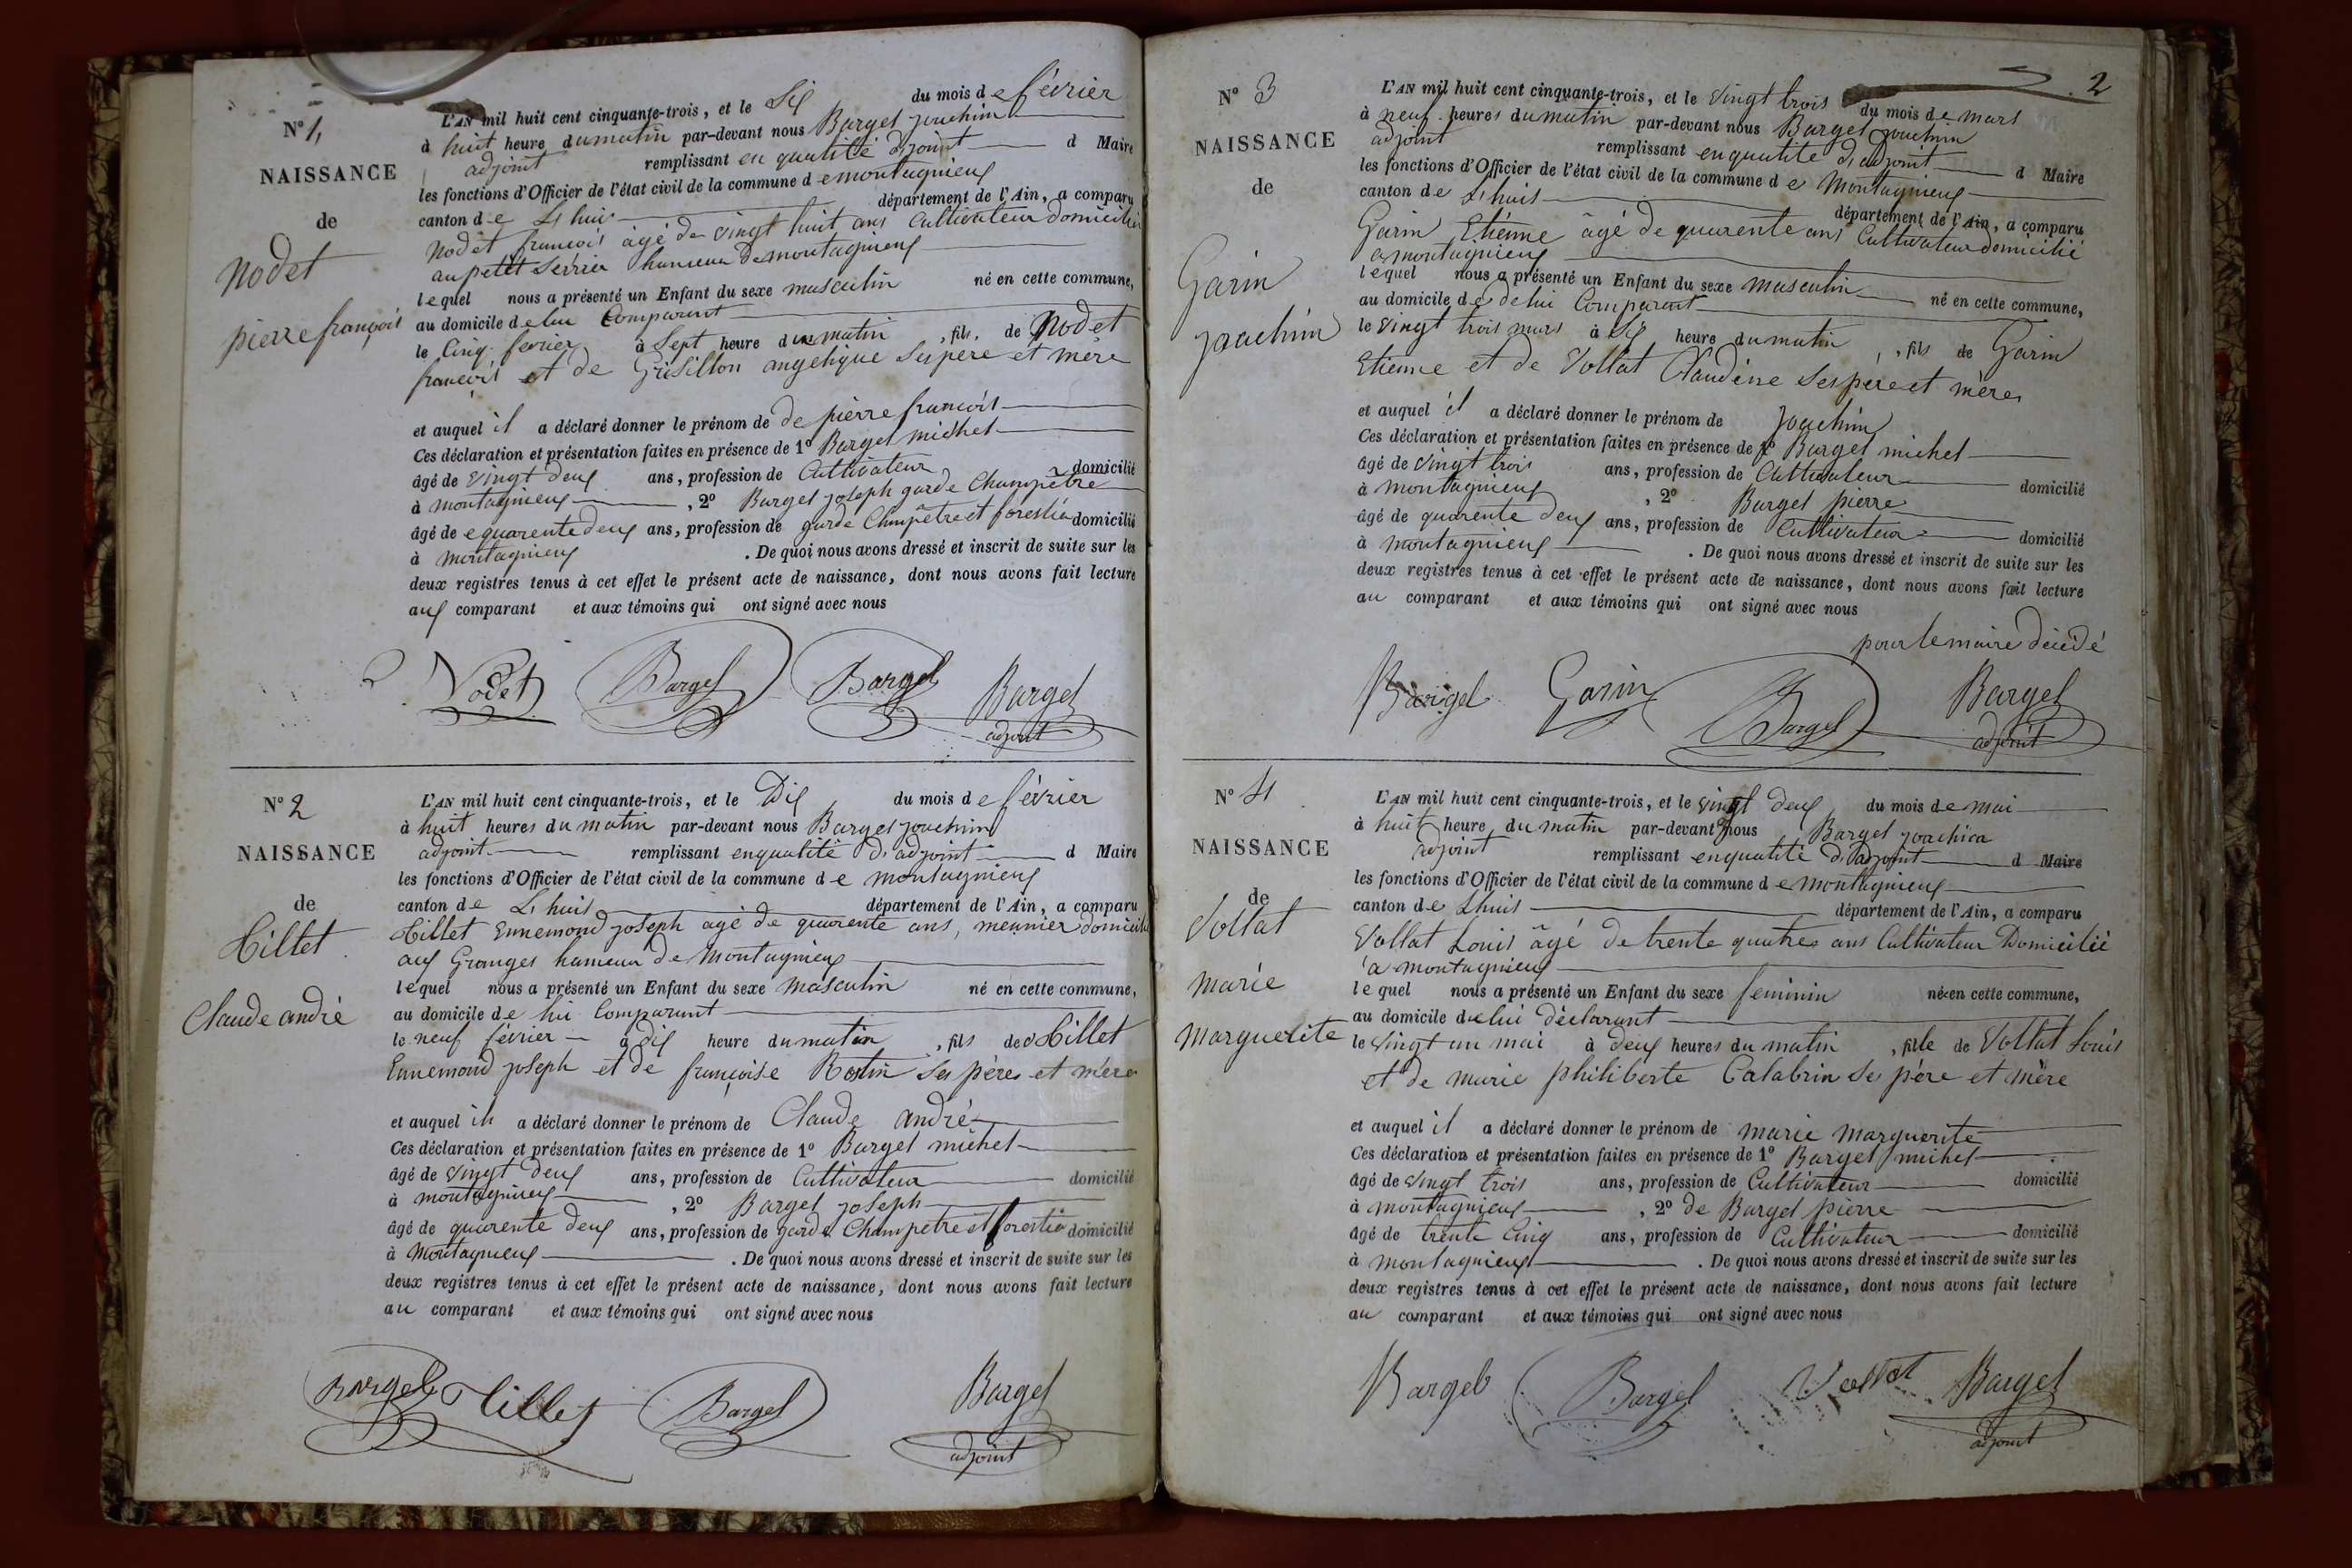 N° 1,
NAISSANCE
de
nodet
pierre françois
L'AN mil huit cent cinquante-trois, et le Six du mois de février
à huit heure du matin par-devant nous Bargel joachim
adjoint remplissant en qualité d'ajoint d Maire
les fonctions d'Officier de l'état civil de la commune de montagnieux
canton de L'huis département de l'Ain, a comparu
nodet françois âgé de vingt huit ans Cultivateur domicilié
au petit Serrier hameau de montagnieux
lequel nous a présenté un Enfant du sexe masculin né en cette commune,
au domicile de lui Comparant
le Cinq février à Sept heure du matin, fils de Nodet
françois et de Grisillon angelique Ses pere et mère
et auquel il a déclaré donner le prénom de de pièrre françois
Ces déclaration et présentation faites en présence de 1° Bargel michel
âgé de vingt deux ans, profession de Cultivateur domicilié
à montagnieux, 2° Bargel joseph garde Champêtre
âgé de quarente deux ans, profession de garde Champêtre et forestié domicilié
à montagnieux. De quoi nous avons dressé et inscrit de suite sur les
deux registres tenus à cet effet le présent acte de naissance, dont nous avons fait lecture
aux comparant et aux témoins qui ont signé avec nous
Nodet Bargel Bargel Bargel
adjoint
N° 2
NAISSANCE
de
tillet
Claude andré
L'AN mil huit cent cinquante-trois, et le Dix du mois de février
à huit heures du matin par-devant nous Bargel joachim
adjoint remplissant en qualité d'adjoint d Maire
les fonctions d'Officier de l'état civil de la commune de montagnieux
canton de L'huis département de l'Ain, a comparu
tillet Ennemond joseph agé de quarente ans, meunier domicilié
aux Granges hameau de Montagnieux
lequel nous a présenté un Enfant du sexe masculin né en cette commune,
au domicile de lui Comparant
le neuf février à dix heure du matin, fils de tillet
Ennemond joseph et de françoise Rostin Ses pères et mère
et auquel il a déclaré donner le prénom de Claude andré
Ces déclaration et présentation faites en présence de 1° Bargel michel
âgé de vingt deux ans, profession de Cultivateur domicilié
à montagnieux, 2° Bargel joseph
âgé de quarente deux ans, profession de garde Champetre et forestié domicilié
à Montagnieux. De quoi nous avons dressé et inscrit de suite sur les
deux registres tenus à cet effet le présent acte de naissance, dont nous avons fait lecture
au comparant et aux témoins qui ont signé avec nous
Bargel tillet Bargel Bargel
adjoint
2
N° 3
NAISSANCE
de
Garin
joachim
L'AN mil huit cent cinquante-trois, et le vingt trois du mois de mars
à neuf heures du matin par-devant nous Bargel joachim
adjoint remplissant en qualité d'adjoint d Maire
les fonctions d'Officier de l'état civil de la commune de Montagnieux
canton de L'huis département de l'Ain, a comparu
Garin Etiénne âgé de quarente ans Cultivateur domicilié
a montagnieux
lequel nous a présenté un Enfant du sexe masculin né en cette commune,
au domicile de de lui Comparant
le vingt trois mars à Six heure du matin, fils de Garin
Etienne et de Vollat Claudine Ses pere et mère
et auquel il a déclaré donner le prénom de joachim
Ces déclaration et présentation faites en présence de 1° Bargel michel
âgé de vingt trois ans, profession de Cultivateur domicilié
à montagnieux, 2° Bargel pierre
âgé de quarente deux ans, profession de Cultivateur domicilié
à montagnieux. De quoi nous avons dressé et inscrit de suite sur les
deux registres tenus à cet effet le présent acte de naissance, dont nous avons fait lecture
au comparant et aux témoins qui ont signé avec nous
pour le maire décédé
Bargel Garin Bargel Bargel
adjoint
N° 4
NAISSANCE
de
Vollat
marie
marguerite
L'AN mil huit cent cinquante-trois, et le vingt deux du mois de mai
à huit heure du matin par-devant nous Bargel joachim
adjoint remplissant en qualité d'adjoint d Maire
les fonctions d'Officier de l'état civil de la commune de montagnieux
canton de Lhuis département de l'Ain, a comparu
Vollat Louis âgé de trente quatre ans Cultivateur Domicilié
a montagnieux
lequel nous a présenté un Enfant du sexe feminin né en cette commune,
au domicile de lui déclarant
le vingt un mai à deux heures du matin, fille de Vollat Louis
et de marie philiberte Calabrin Se père et mère
et auquel il a déclaré donner le prénom de marie marguerite
Ces déclaration et présentation faites en présence de 1° Bargel michel
âgé de vingt trois ans, profession de Cultivateur domicilié
à montagnieux, 2° de Bargel pierre
âgé de trente Cinq ans, profession de Cultivateur domicilié
à montagnieux. De quoi nous avons dressé et inscrit de suite sur les
deux registres tenus à cet effet le présent acte de naissance, dont nous avons fait lecture
au comparant et aux témoins qui ont signé avec nous
Bargel Bargel Vollat Bargel
adjoint